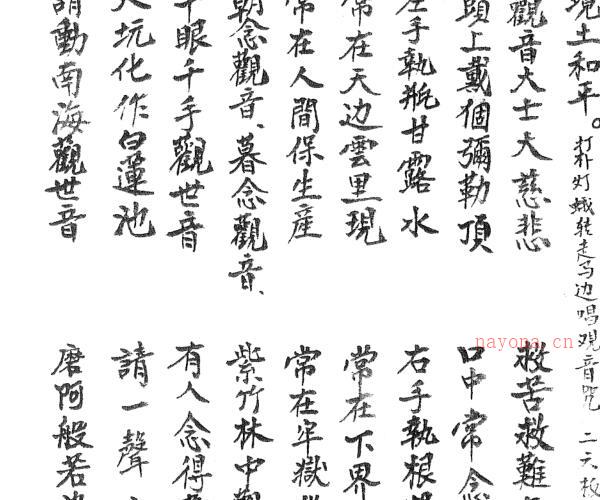 土和平。
打朴灯蛾转走马边唱观音咒 二
觀音大士大慈悲 救苦救難
頭上戴個彌勒頂 口中常念
左手執瓶甘露水 右手執根
常在天边雲里現 常在下界
常在人間保生産 常在牢獄
朝念觀音、暮念觀音、 紫竹林中觀
千眼千手觀世音 有人念得
坑化作白蓮池 請一聲
請動南海觀世音 阿般若
nayona.cn